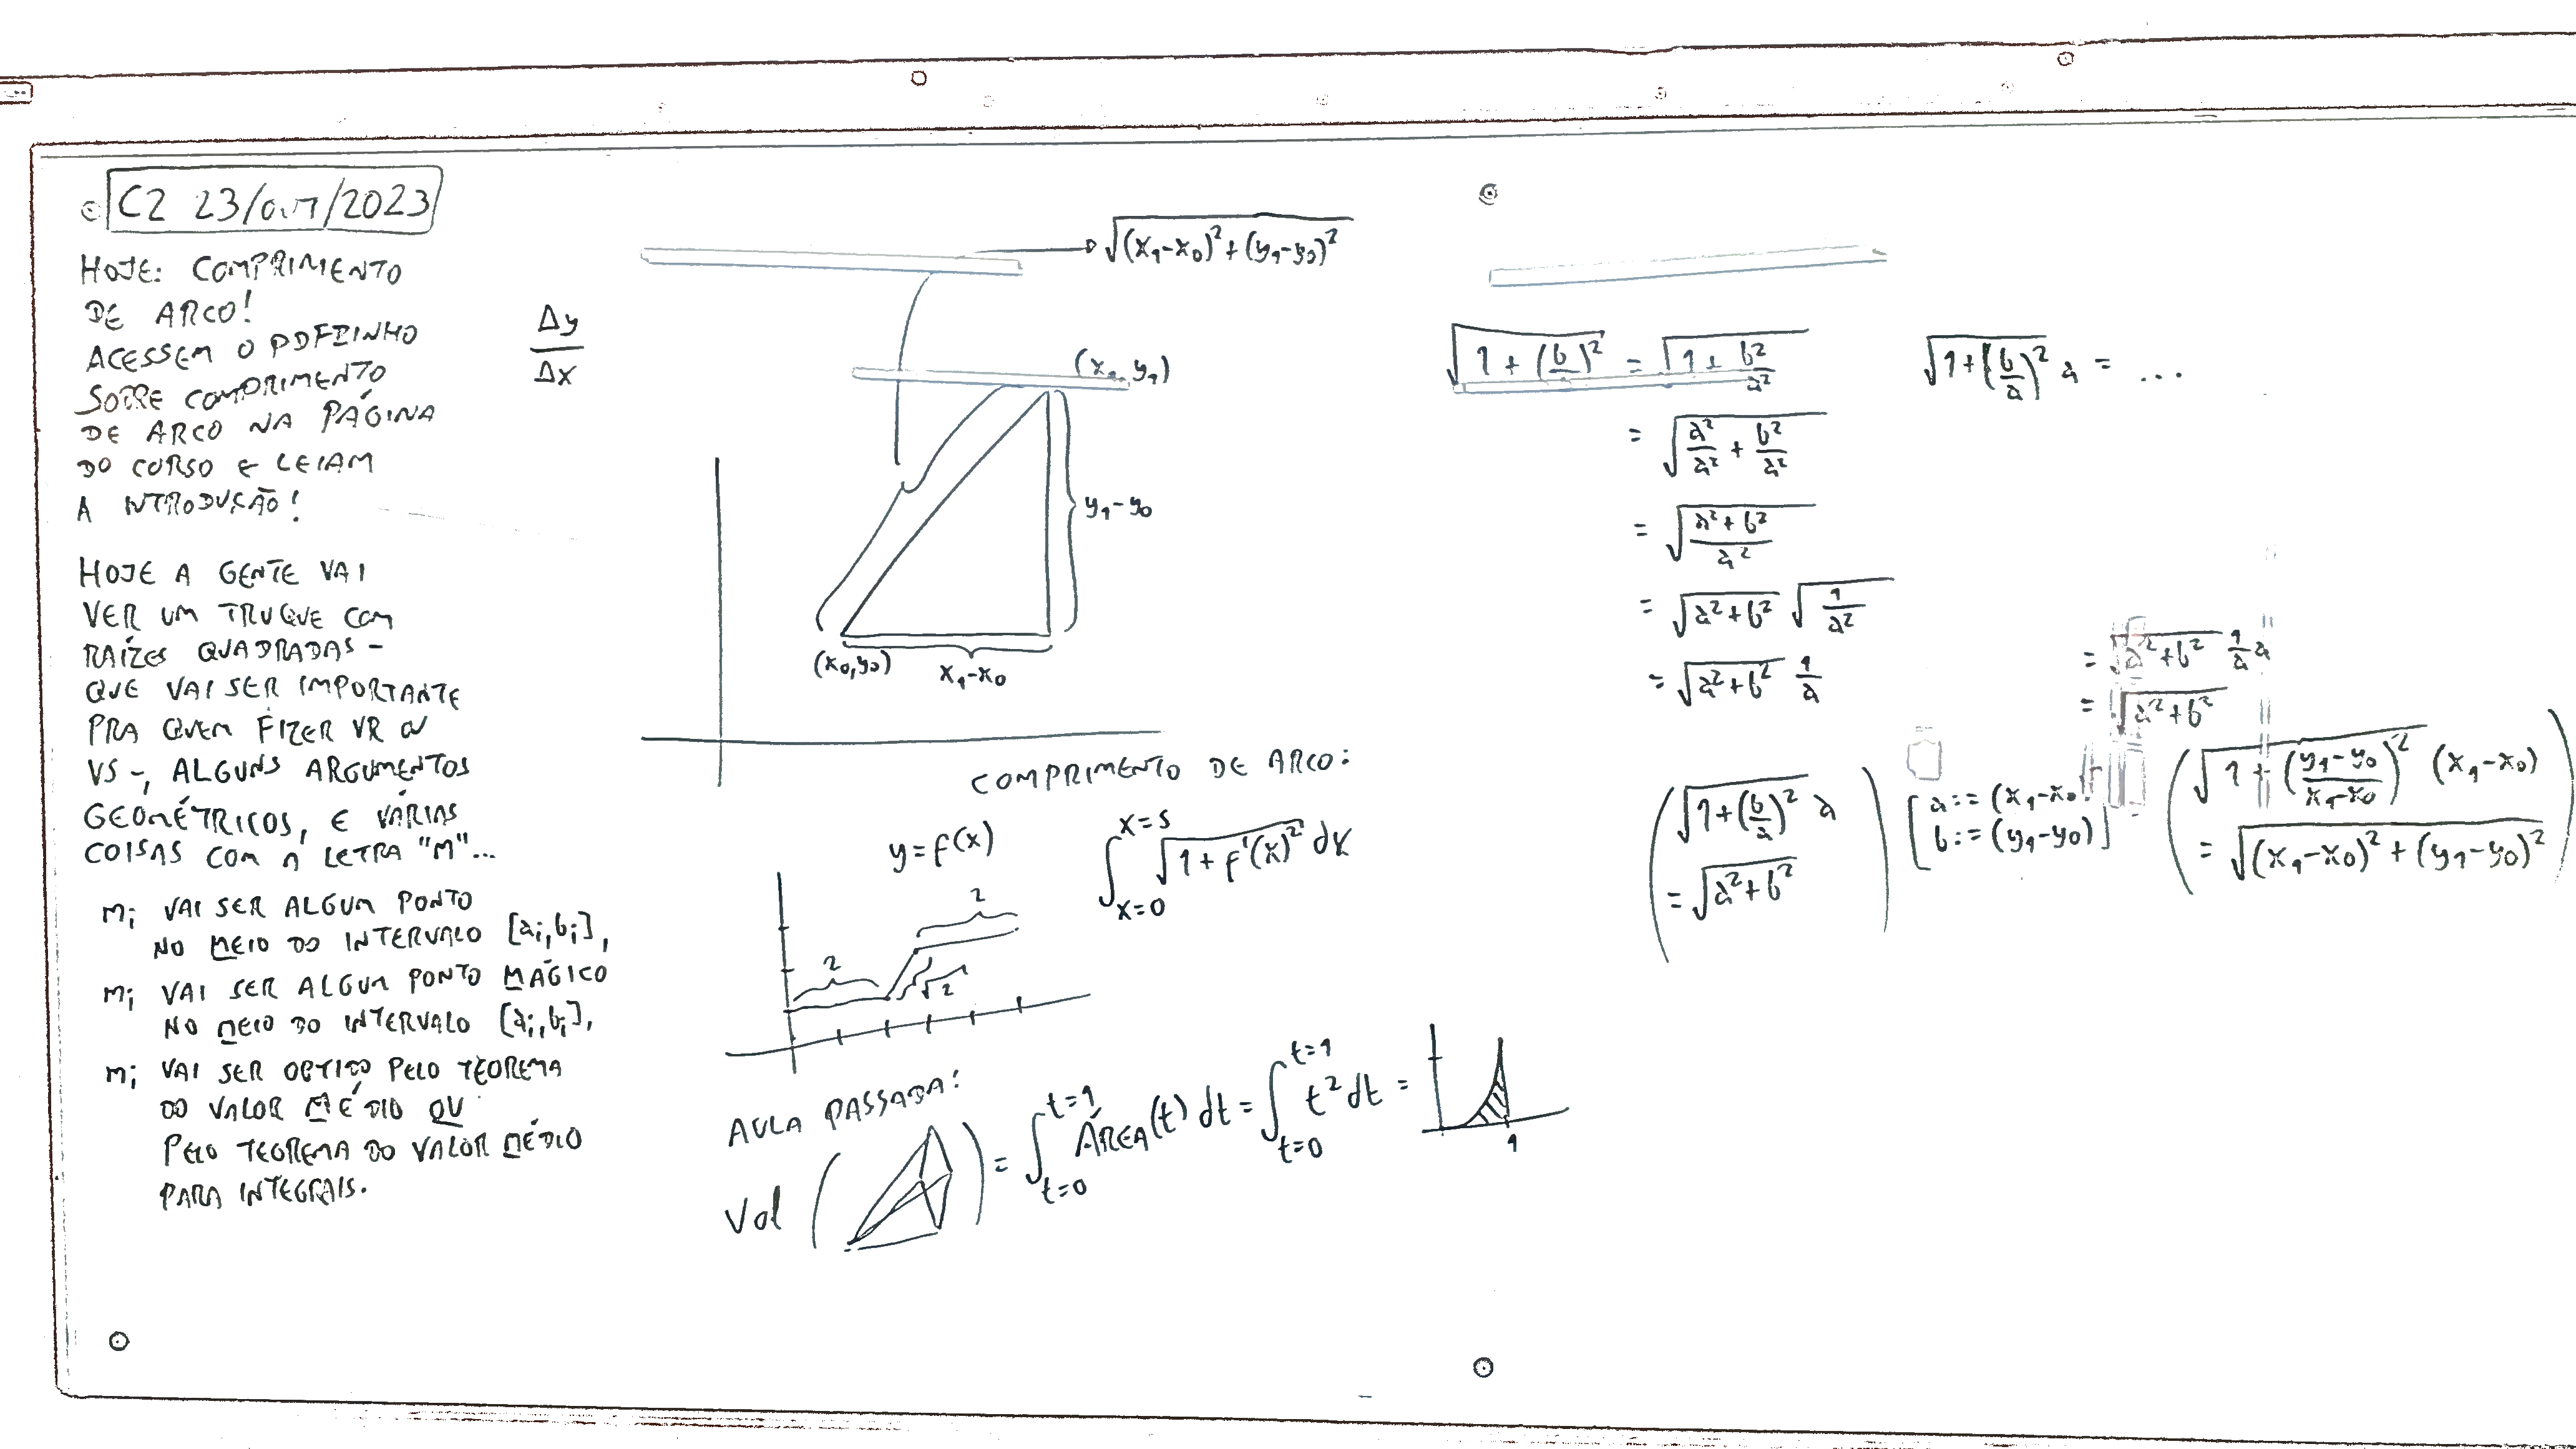 C2 23/out/2023
HOJE: COMPRIMENTO
DE ARCO!
ACESSEM O PDFZINHO
SOBRE COMPRIMENTO
DE ARCO NA PÁGINA
DO CURSO E LEIAM
A INTRODUÇÃO!
HOJE A GENTE VAI
VER UM TRUQUE COM
RAÍZES QUADRADAS –
QUE VAI SER IMPORTANTE
PRA QUEM FIZER VR OU
VS –, ALGUNS ARGUMENTOS
GEOMÉTRICOS, E VÁRIAS
COISAS COM A LETRA "M"...
mᵢ VAI SER ALGUM PONTO
NO MEIO DO INTERVALO [aᵢ,bᵢ],
mᵢ VAI SER ALGUM PONTO MÁGICO
NO MEIO DO INTERVALO [aᵢ,bᵢ],
mᵢ VAI SER OBTIDO PELO TEOREMA
DO VALOR MÉDIO OU
PELO TEOREMA DO VALOR MÉDIO
PARA INTEGRAIS.
Δy
Δx
√((x₁-x₀)²+(y₁-y₀)²)
(x₁,y₁)
y₁-y₀
(x₀,y₀) x₁-x₀
COMPRIMENTO DE ARCO:
y=f(x)
∫_{x=0}^{x=5} √(1+f'(x)²) dx
2
2
√2
AULA PASSADA:
Vol ( ) = ∫_{t=0}^{t=1} ÁREA(t) dt = ∫_{t=0}^{t=1} t² dt =
1
√(1+(b/a)²) = √(1+b²/a²)
= √(a²/a² + b²/a²)
= √((a²+b²)/a²)
= √(a²+b²) √(1/a²)
= √(a²+b²) 1/a
√(1+(b/a)²) a = ...
= √(a²+b²) 1/a a
= √(a²+b²)
(√(1+(b/a)²) a
= √(a²+b²))
[a:=(x₁-x₀)
b:=(y₁-y₀)]
=
(√(1+((y₁-y₀)/(x₁-x₀))²) (x₁-x₀)
= √((x₁-x₀)²+(y₁-y₀)²))